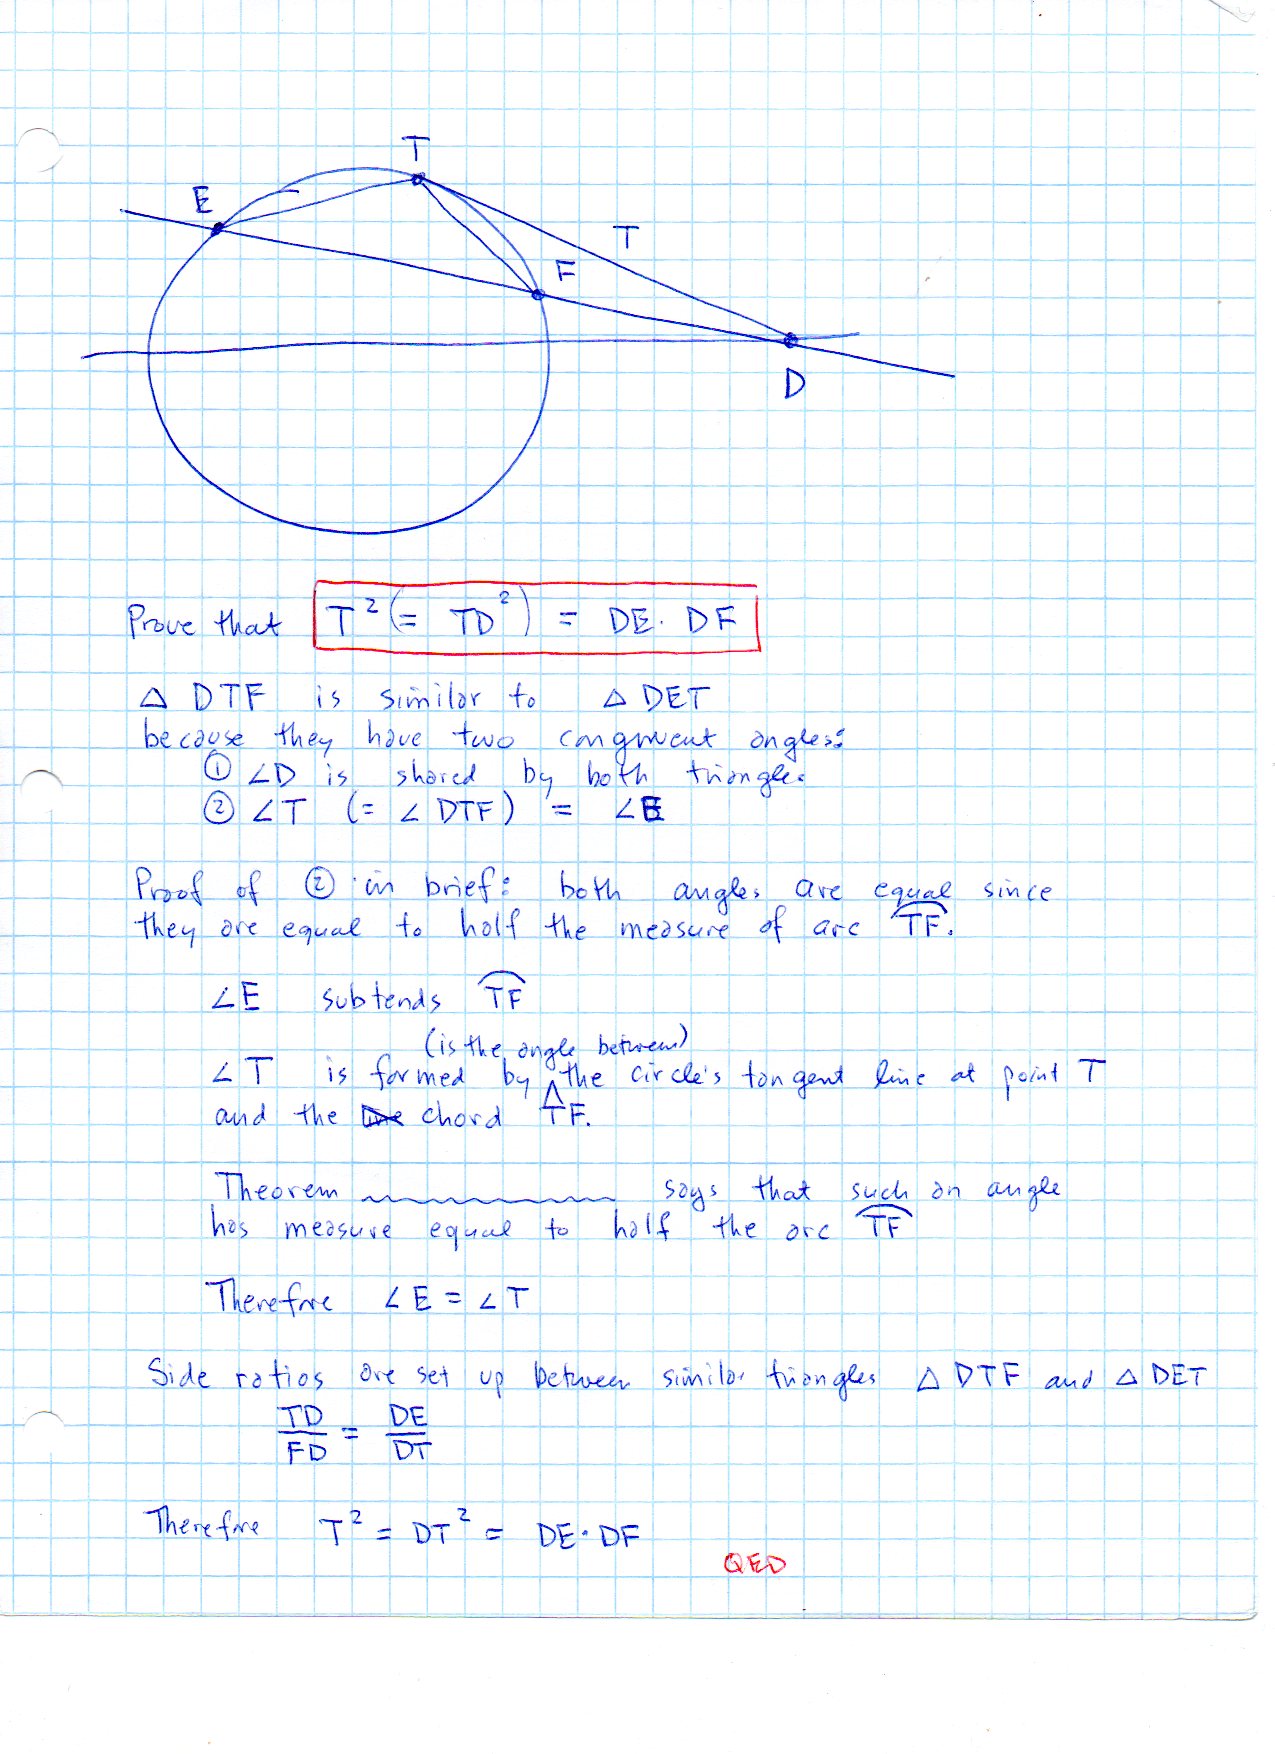 T
E
T
F
D
Prove that T² (= TD²) = DE · DF
△ DTF is similar to △ DET
because they have two congruent angles:
① ∠D is shared by both triangles.
② ∠T (= ∠ DTF) = ∠E
Proof of ② in brief: both angles are equal since
they are equal to half the measure of arc T͡F.
∠E subtends T͡F
(is the angle between)
∠T is formed by the circle's tangent line at point T
and the chord TF.
Theorem says that such an angle
has measure equal to half the arc T͡F
Therefore ∠E = ∠T
Side ratios are set up between similar triangles △ DTF and △ DET
TD/FD = DE/DT
Therefore T² = DT² = DE · DF
QED